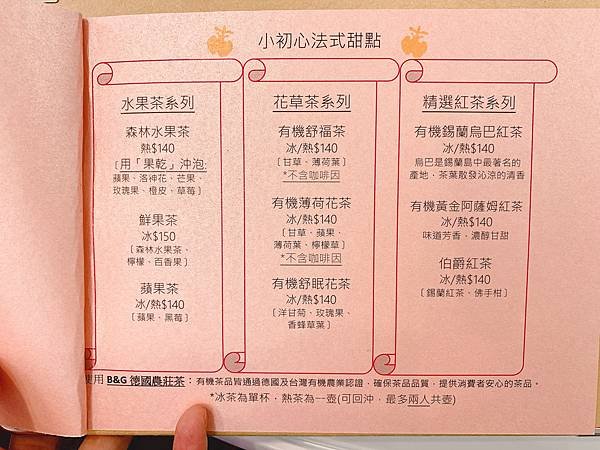 小初心法式甜點
水果茶系列
森林水果茶
熱$140
〔用「果乾」沖泡:
蘋果、洛神花、芒果、
玫瑰果、橙皮、草莓〕
鮮果茶
冰$150
〔森林水果茶、
檸檬、百香果〕
蘋果茶
冰/熱$140
〔蘋果、黑莓〕
花草茶系列
有機舒福茶
冰/熱$140
〔甘草、薄荷葉〕
*不含咖啡因
有機薄荷花茶
冰/熱$140
〔甘草、蘋果、
薄荷葉、檸檬草〕
*不含咖啡因
有機舒眠花茶
冰/熱$140
〔洋甘菊、玫瑰果、
香蜂草葉〕
精選紅茶系列
有機錫蘭烏巴紅茶
冰/熱$140
烏巴是錫蘭島中最著名的
產地、茶葉散發沁涼的清香
有機黃金阿薩姆紅茶
冰/熱$140
味道芳香、濃醇甘甜
伯爵紅茶
冰/熱$140
〔錫蘭紅茶、佛手柑〕
使用 B&G 德國農莊茶：有機茶品皆通過德國及台灣有機農業認證，確保茶品品質，提供消費者安心的茶品。
*冰茶為單杯，熱茶為一壺(可回沖，最多兩人共壺)